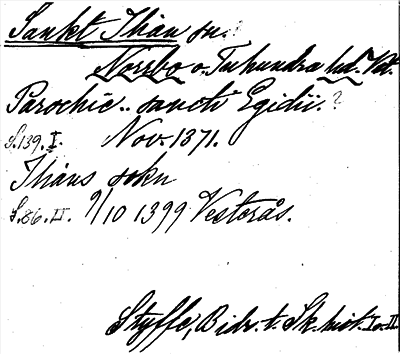 Sankt Ihån sn.
Norrbo o. Tuhundra hd. Vstm.
Parochie.. sancti Egidii.?
S.139.I. Nov. 1371.
Ihåns sokn
S.86.II. 9/10 1399 Vesterås.
Styffe, Bidr. t. Sk. hist. I o. II